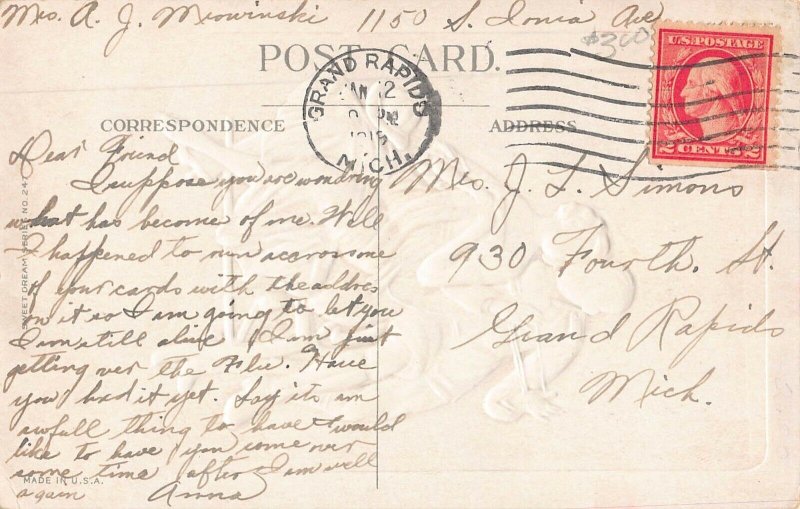 Mrs. A. J. Mrowinski 1150 S. Ionia Ave
$3.00
U.S. POSTAGE
2 CENTS 2
POST CARD.
GRAND RAPIDS
JAN 12
MICH.
CORRESPONDENCE
ADDRESS
Dear Friend
I suppose you are wondring
what has become of me. Well
I happened to run accross one
of your cards with the addres
on it so I am going to let you
I am still alive I am just
getting over the Flu. Have
you had it yet. Say its an
awfull thing to have I would
like to have you come over
some time after I am well
again Anna
Mrs. J. L. Simons
930 Fourth. St.
Grand Rapids
Mich.
SWEET DREAM SERIES NO. 24
MADE IN U.S.A.